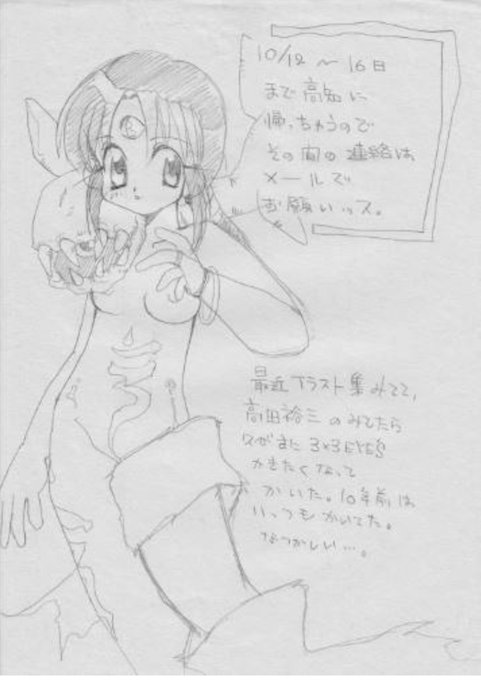 10/12 〜 16日
まで高知に
帰っちゃうので
その間の連絡は
メールで
お願いッス。
最近イラスト集みてて、
高田裕三のみてたら
久々に3×3EYES
かきたくなって
かいた。10年前は
いっつもかいてた。
なつかしい…。